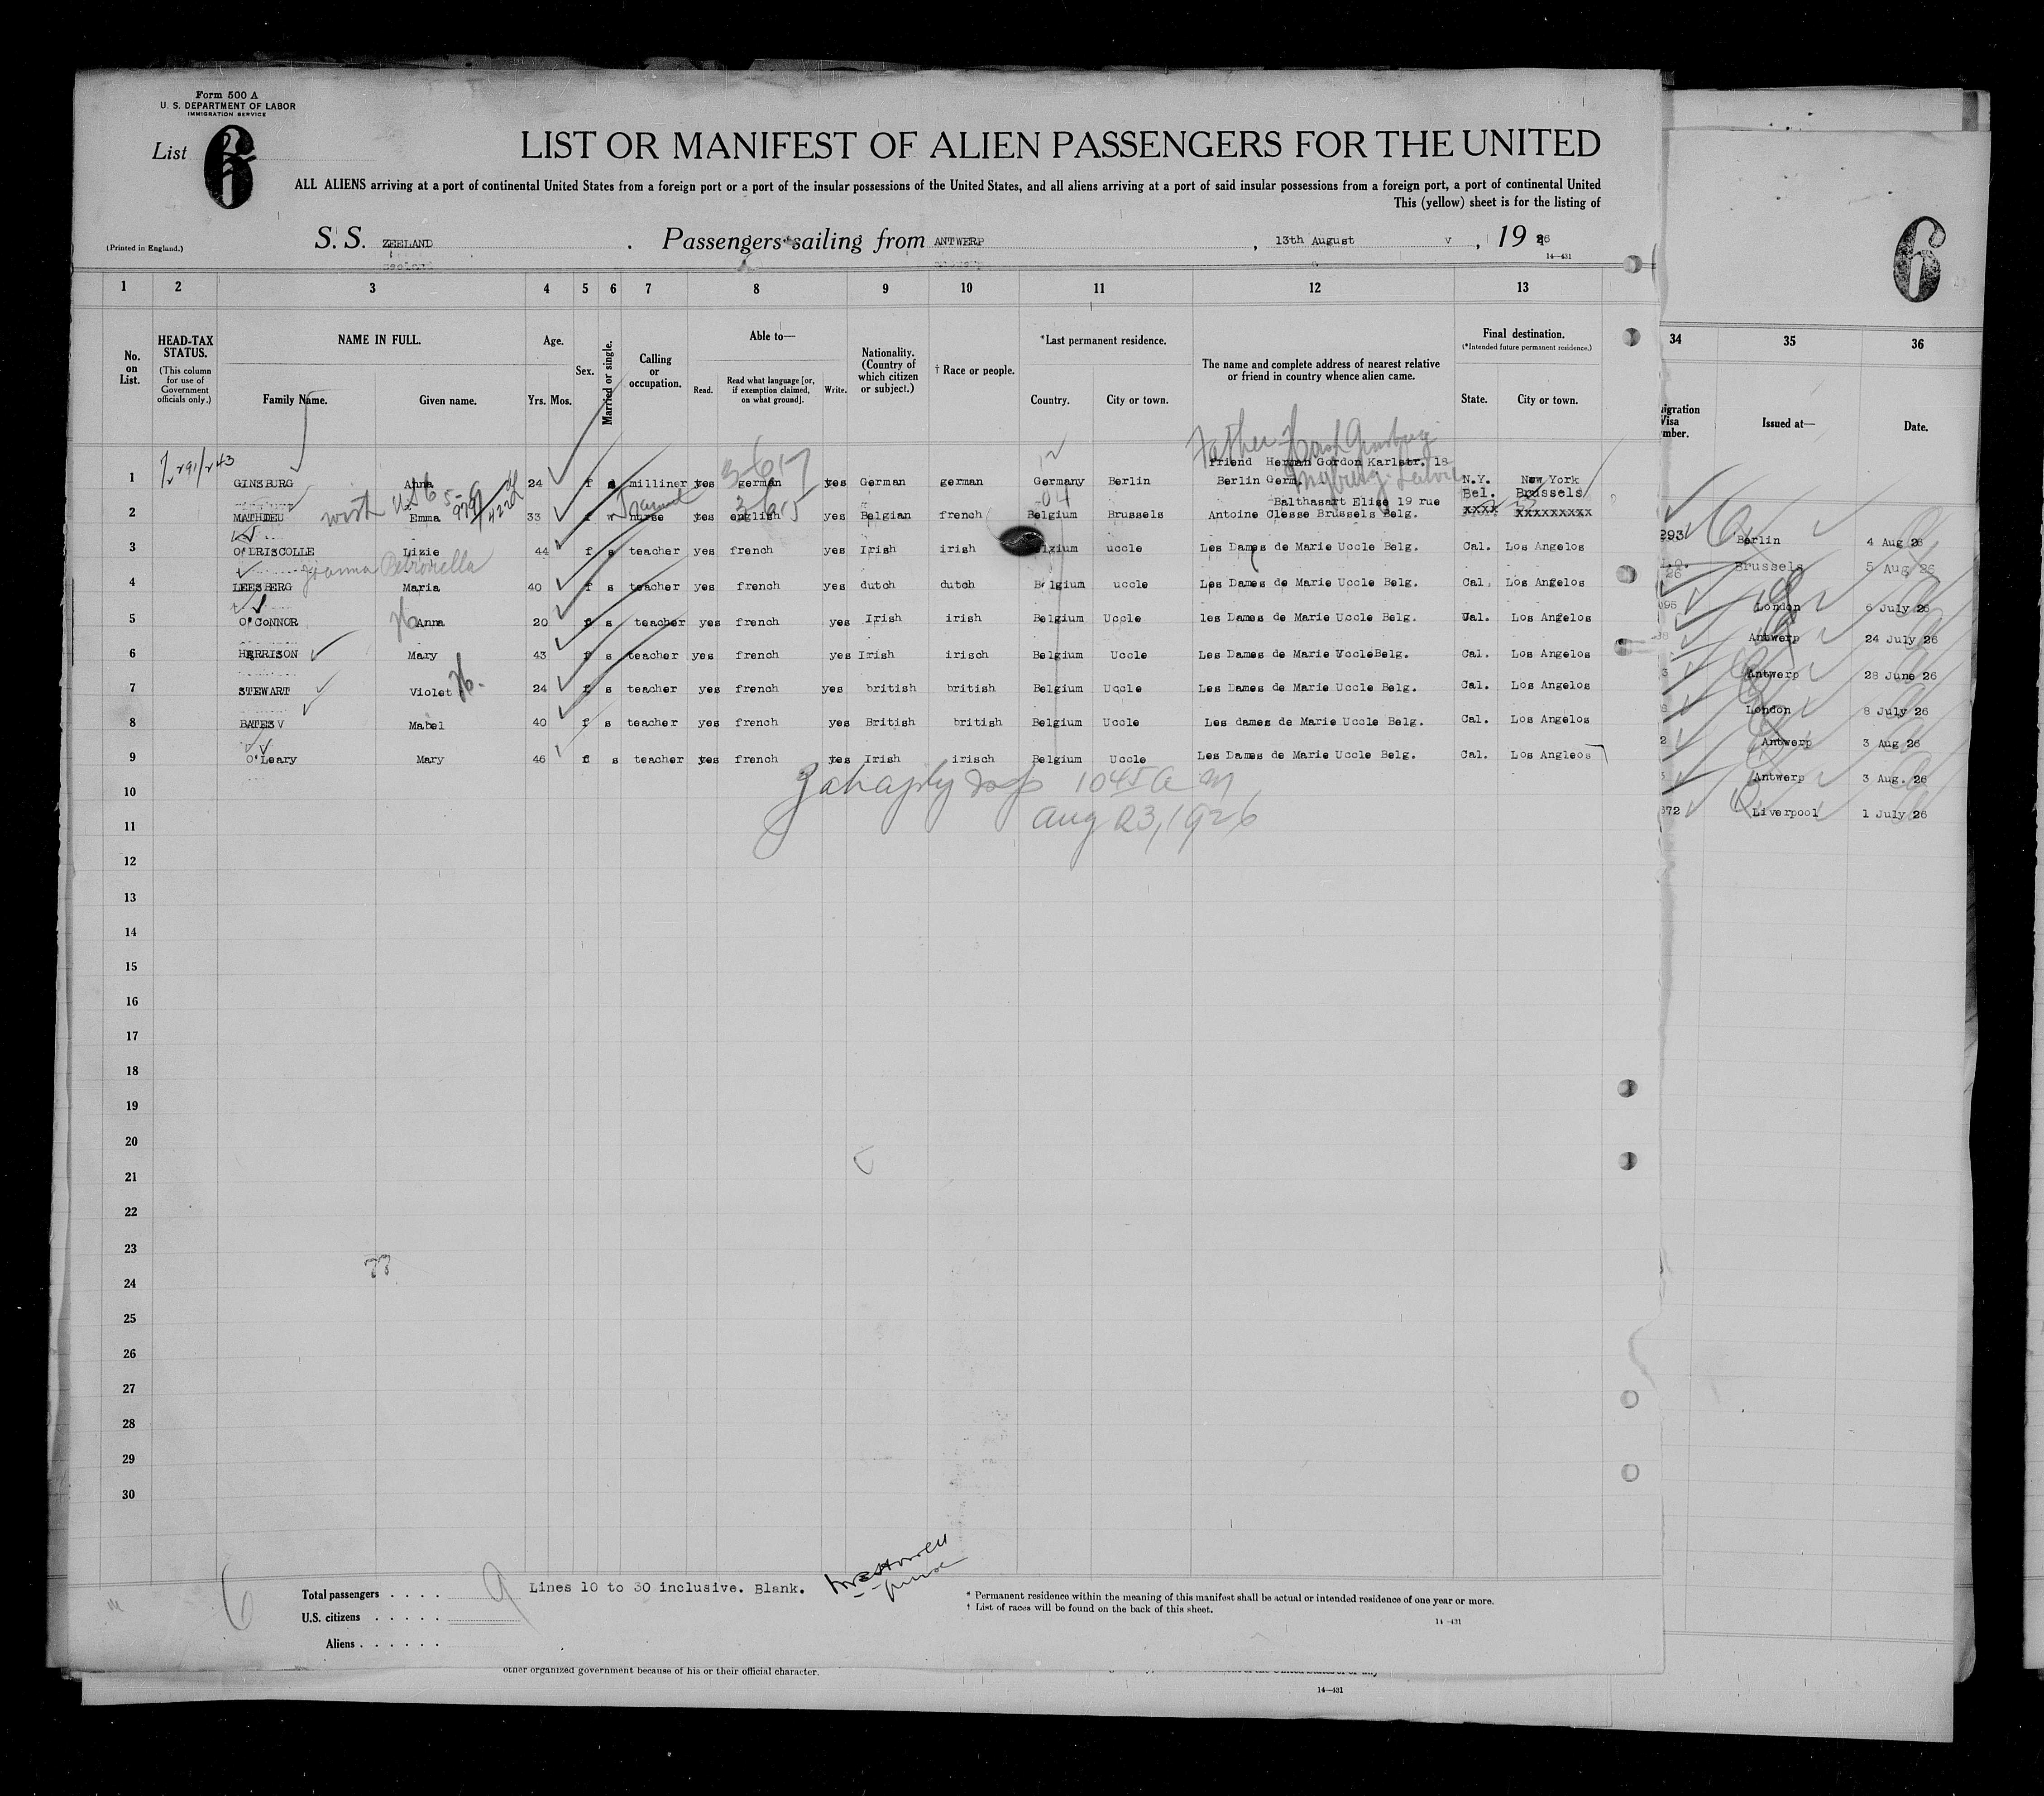 Form 500 A
U. S. DEPARTMENT OF LABOR
IMMIGRATION SERVICE
List 6
LIST OR MANIFEST OF ALIEN PASSENGERS FOR THE UNITED
ALL ALIENS arriving at a port of continental United States from a foreign port or a port of the insular possessions of the United States, and all aliens arriving at a port of said insular possessions from a foreign port, a port of continental United
This (yellow) sheet is for the listing of
(Printed in England.)
S. S. ZEELAND . Passengers sailing from ANTWERP , 13th August , 19 26
14—431
6
1 2 3 4 5 6 7 8 9 10 11 12 13
34 35 36
No. on List.
HEAD-TAX STATUS.
(This column for use of Government officials only.)
NAME IN FULL.
Family Name. Given name.
Age.
Yrs. Mos.
Sex.
Married or single.
Calling or occupation.
Able to—
Read. Read what language [or, if exemption claimed, on what ground]. Write.
Nationality. (Country of which citizen or subject.)
† Race or people.
*Last permanent residence.
Country. City or town.
The name and complete address of nearest relative or friend in country whence alien came.
Final destination.
(*Intended future permanent residence.)
State. City or town.
Issued at—
Date.
Father
3-617
friend Herman Gordon Karlstr. 18
1 GINSBURG Anna 24 f s milliner yes german yes German german Germany Berlin Berlin Germ. N.Y. New York
3-615
Balthasart Elise 19 rue Bel. Brussels
2 MATHIEU Emma 33 f w nurse yes english yes Belgian french Belgium Brussels Antoine Clesse Brussels Belg. xxxx xxxxxxxxx
3 O'DRISCOLLE Lizie 44 f s teacher yes french yes Irish irish Belgium uccle Les Dames de Marie Uccle Belg. Cal. Los Angelos
Joanna Petronella
4 LEESBERG Maria 40 f s teacher yes french yes dutch dutch Belgium uccle Les Dames de Marie Uccle Belg. Cal. Los Angelos
5 O'CONNOR Anna 20 f s teacher yes french yes Irish irish Belgium Uccle les Dames de Marie Uccle Belg. Cal. Los Angelos
6 HARRISON Mary 43 f s teacher yes french yes Irish irisch Belgium Uccle Les Dames de Marie UccleBelg. Cal. Los Angelos
7 STEWART Violet 24 f s teacher yes french yes british british Belgium Uccle Les Dames de Marie Uccle Belg. Cal. Los Angelos
8 BATES Mabel 40 f s teacher yes french yes British british Belgium Uccle Les dames de Marie Uccle Belg. Cal. Los Angelos
9 O'Leary Mary 46 f s teacher yes french yes Irish irisch Belgium Uccle Les Dames de Marie Uccle Belg. Cal. Los Angleos
293 Berlin 4 Aug 26
Brussels 5 Aug 26
London 6 July 26
Antwerp 24 July 26
Antwerp 28 June 26
London 8 July 26
Antwerp 3 Aug 26
Antwerp 3 Aug. 26
Liverpool 1 July 26
10 1045 a m
11 Aug 23, 1926
12
13
14
15
16
17
18
19
20
21
22
23
24
25
26
27
28
29
30
6
Total passengers . . . . 9
Lines 10 to 30 inclusive. Blank.
U.S. citizens . . . . .
Aliens . . . . . .
* Permanent residence within the meaning of this manifest shall be actual or intended residence of one year or more.
† List of races will be found on the back of this sheet.
14—431
other organized government because of his or their official character.
14—431